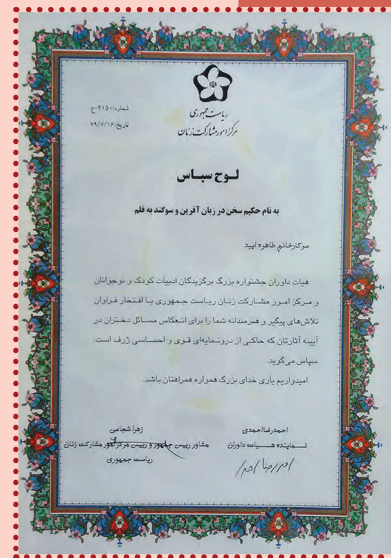 ریاست جمهوری
مرکز امور مشارکت زنان
شماره: ۴۱۵۰-ح
تاریخ: ۷۹/۷/۱۶
لوح سپاس
به نام حکیم سخن در زبان آفرین و سوگند به قلم
سرکار خانم طاهره ایبد
هیات داوران جشنواره بزرگ برگزیدگان ادبیات کودک و نوجوانان
و مرکز امور مشارکت زنان ریاست جمهوری با افتخار فراوان
تلاش‌های پیگیر و هنرمندانه شما را برای انعکاس مسائل دختران در
آیینه آثارتان که حاکی از درونمایه‌ای قوی و احساسی ژرف است،
سپاس می‌گوید.
امیدواریم یاری خدای بزرگ همواره همراهتان باشد.
احمدرضا احمدی
نماینده هیات داوران
زهرا شجاعی
مشاور رییس جمهور و رییس مرکز امور مشارکت زنان
ریاست جمهوری